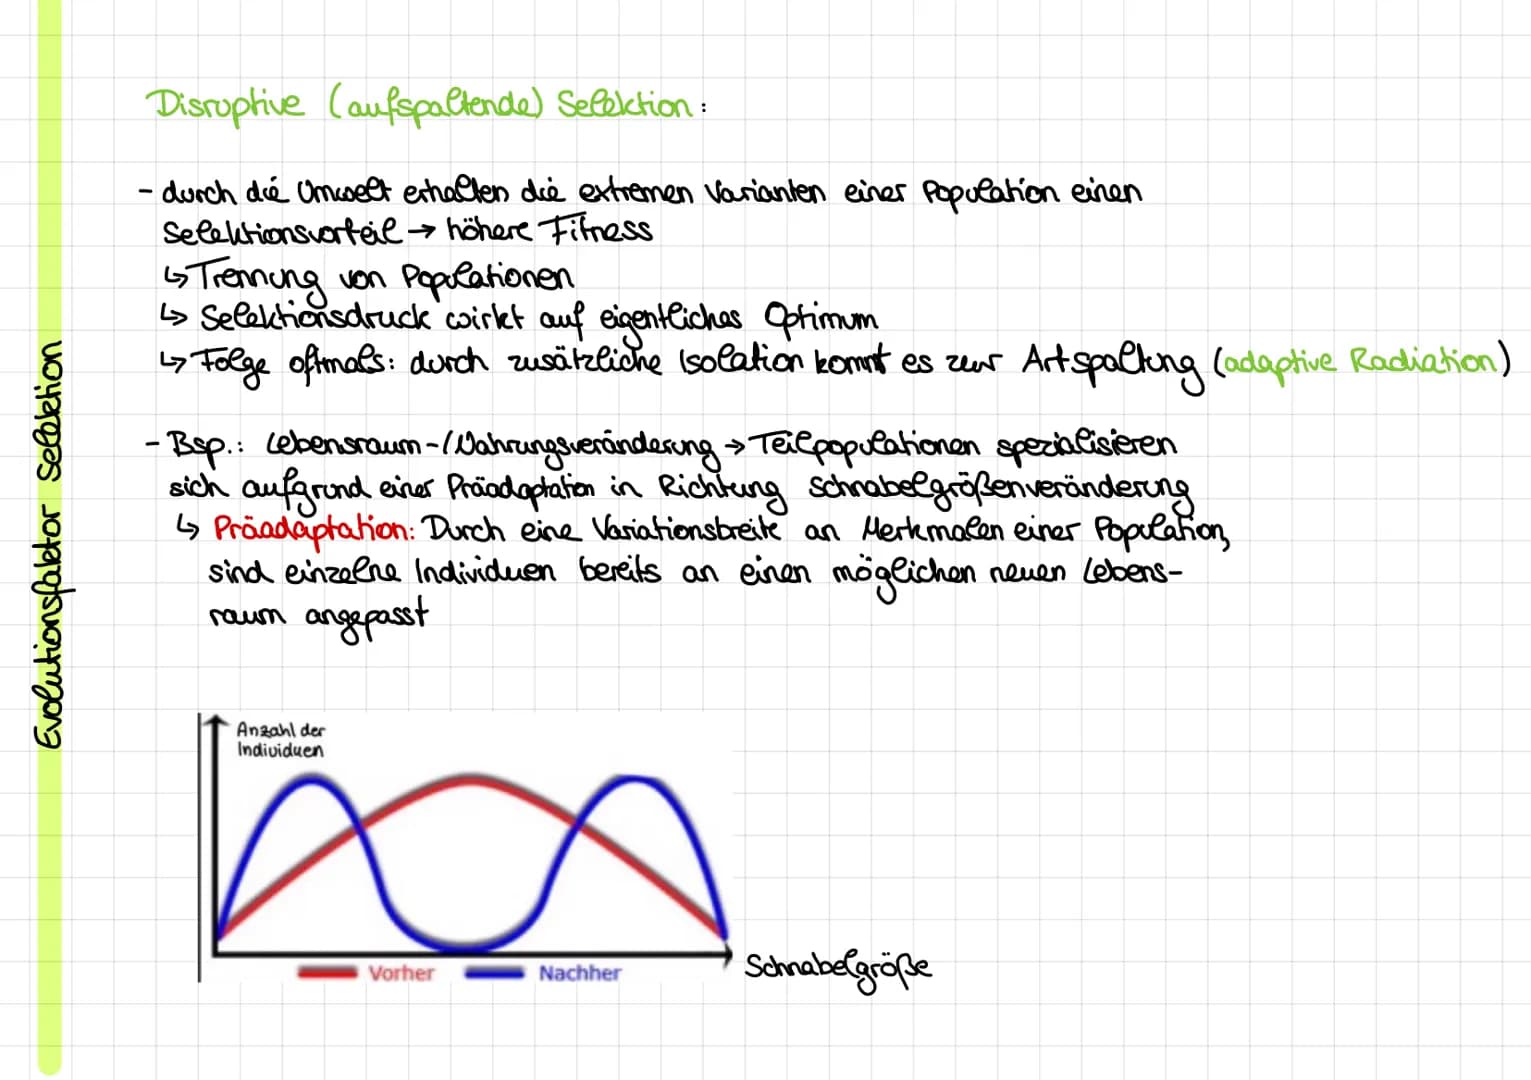 Evolutionsfaktor Selektion
Disruptive (aufspaltende) Selektion:
- durch die Umwelt erhalten die extremen Varianten einer Population einen
Selektionsvorteil → höhere Fitness
↳ Trennung von Populationen
↳ Selektionsdruck wirkt auf eigentliches Optimum
↳ Folge oftmals: durch zusätzliche Isolation kommt es zur Artspaltung (adaptive Radiation)
- Bsp.: Lebensraum-/Nahrungsveränderung → Teilpopulationen spezialisieren
sich aufgrund einer Präadaptation in Richtung Schnabelgrößenveränderung
↳ Präadaptation: Durch eine Variationsbreite an Merkmalen einer Population,
sind einzelne Individuen bereits an einen möglichen neuen Lebens-
raum angepasst
Anzahl der
Individuen
Schnabelgröße
Vorher Nachher